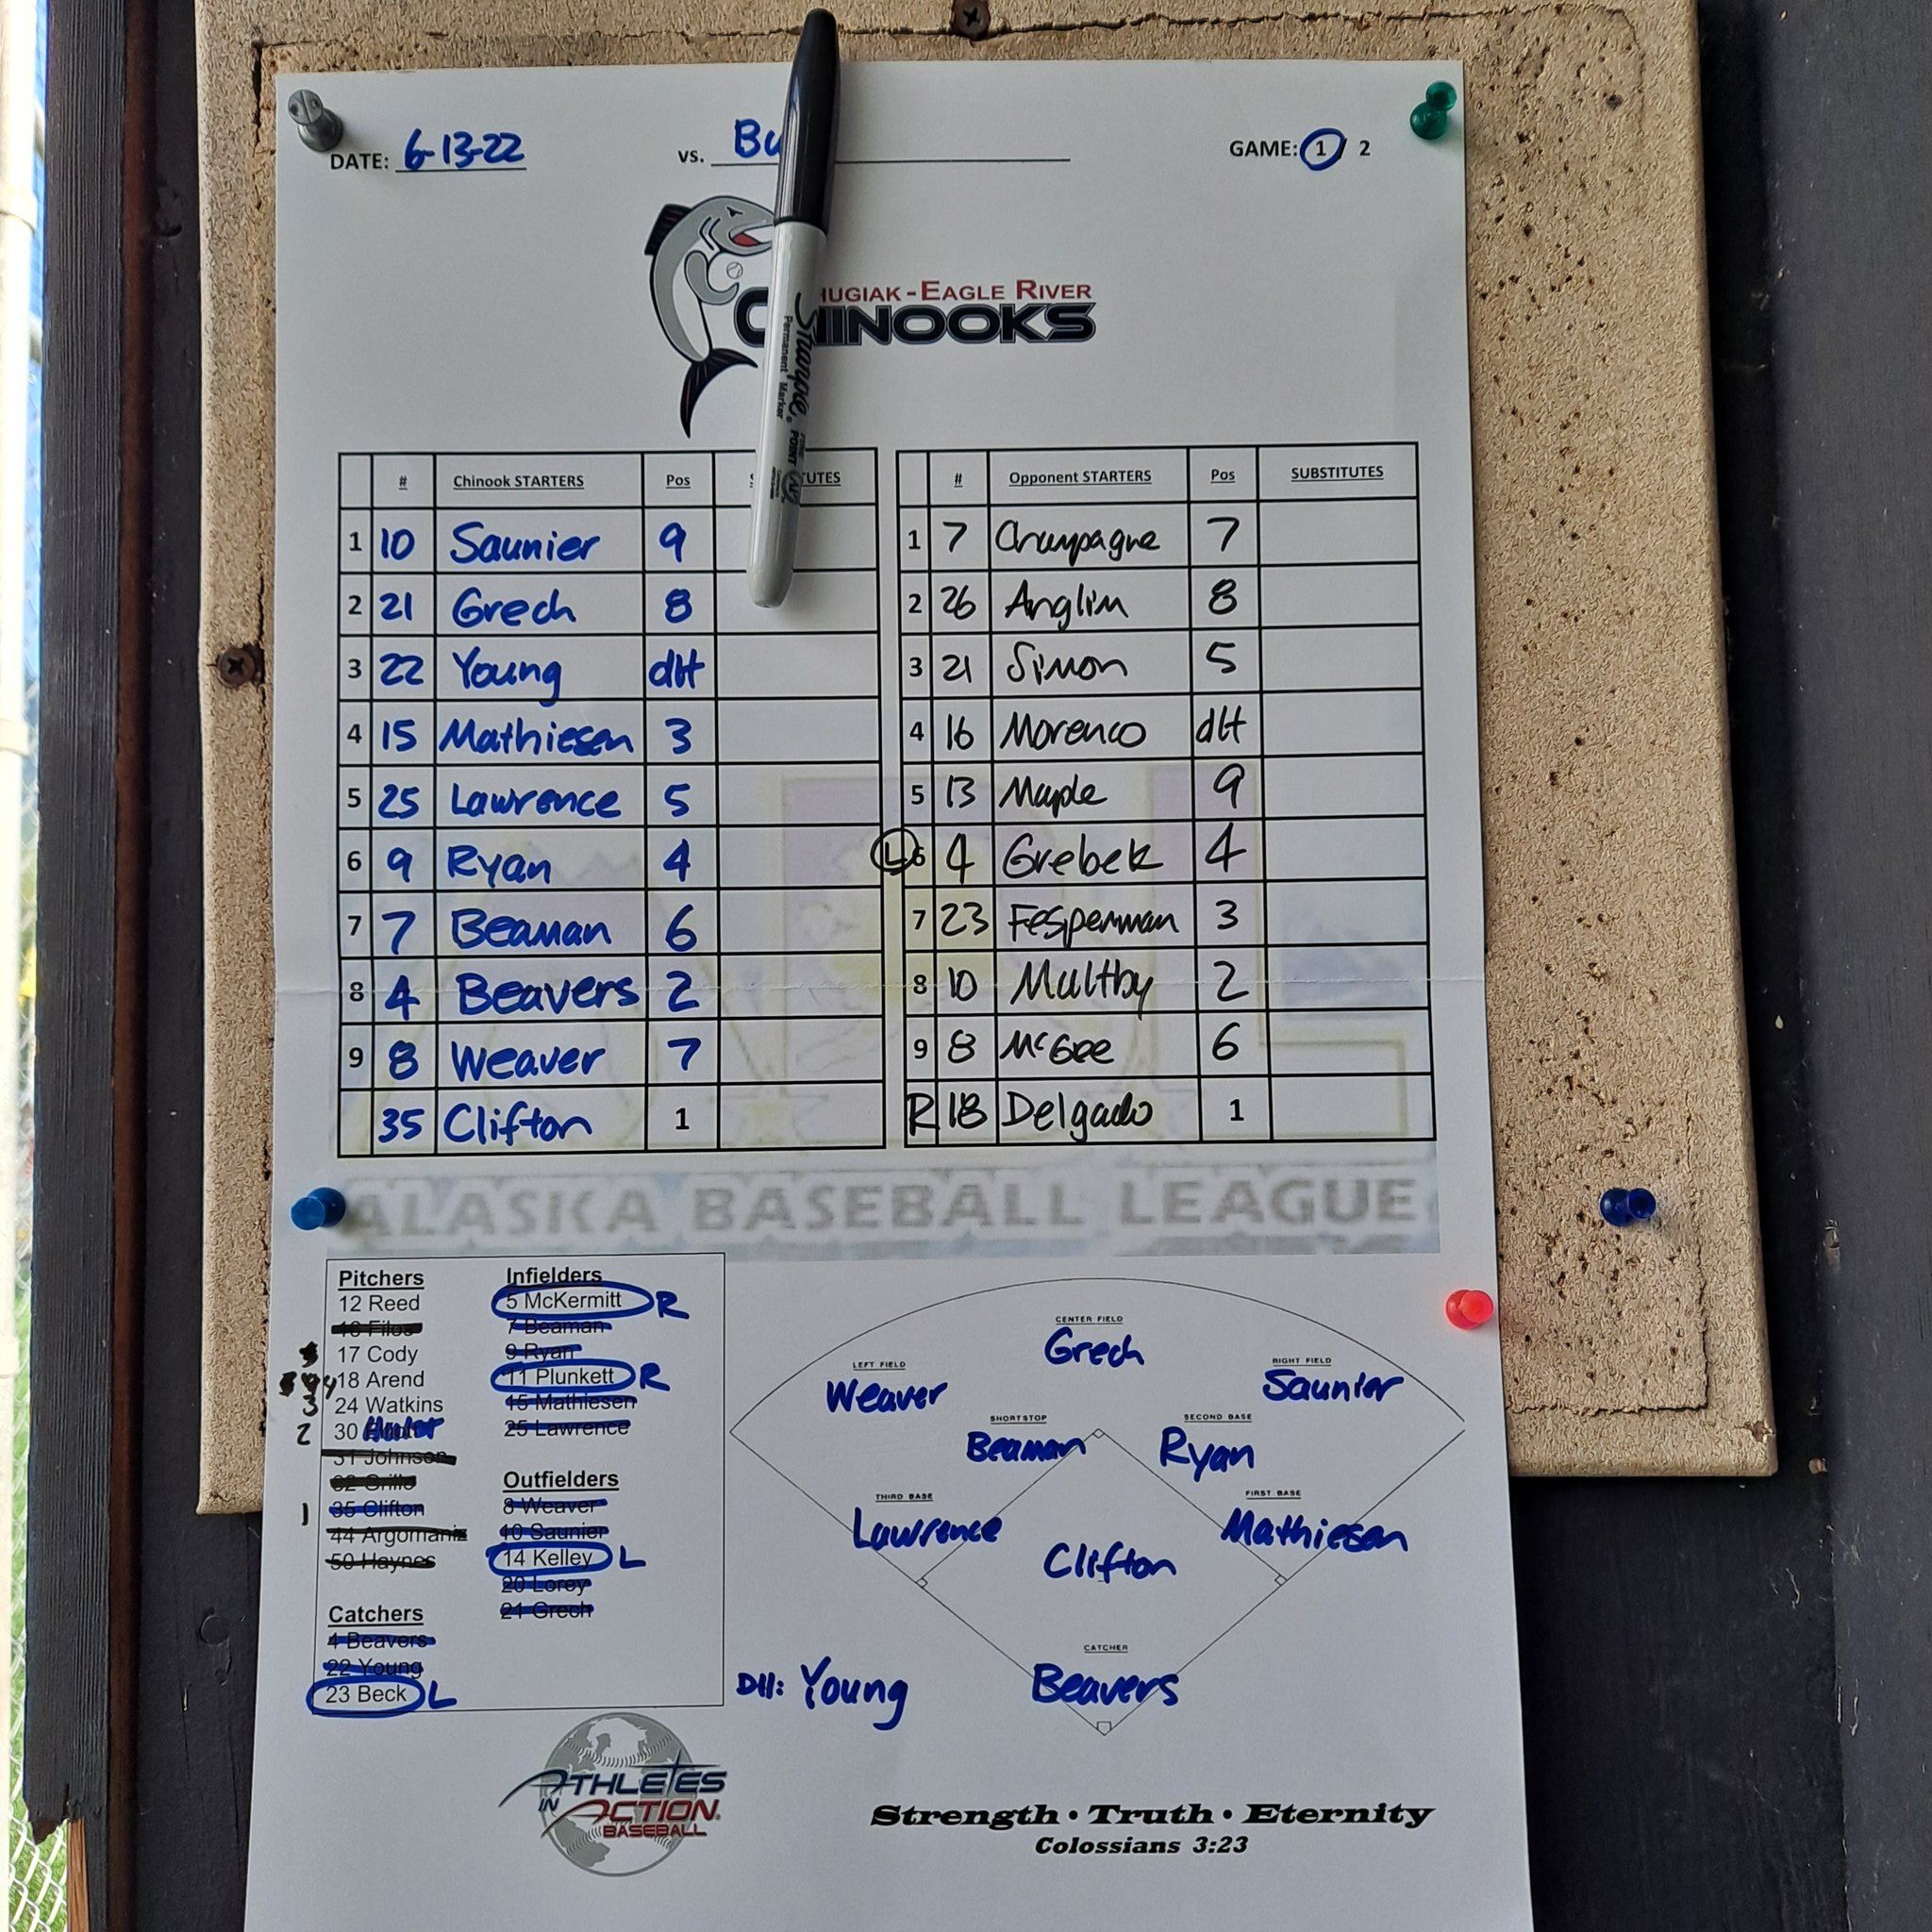 DATE: 6-13-22 vs. Bu GAME: 1 / 2
HUGIAK - EAGLE RIVER
CHINOOKS
Sharpie
Permanent Marker
FINE POINT
# Chinook STARTERS Pos
1 10 Saunier 9
2 21 Grech 8
3 22 Young dH
4 15 Mathiesen 3
5 25 Lawrence 5
6 9 Ryan 4
7 7 Beaman 6
8 4 Beavers 2
9 8 Weaver 7
35 Clifton 1
# Opponent STARTERS Pos SUBSTITUTES
1 7 Champagne 7
2 26 Anglim 8
3 21 Simon 5
4 16 Morenco dH
5 13 Maple 9
L 6 4 Grebek 4
7 23 Fesperman 3
8 10 Maltby 2
9 8 McGee 6
R 18 Delgado 1
ALASKA BASEBALL LEAGUE
Pitchers
12 Reed
16 Filos
17 Cody
4 18 Arend
3 24 Watkins
2 30
31 Johnson
32 Grillo
1 35 Clifton
44 Argomaniz
50 Haynes
Catchers
4 Beavers
22 Young
23 Beck L
Infielders
5 McKermitt R
7 Beaman
9 Ryan
11 Plunkett R
15 Mathiesen
25 Lawrence
Outfielders
8 Weaver
10 Saunier
14 Kelley L
20 Lorey
21 Grech
CENTER FIELD
Grech
LEFT FIELD
Weaver
RIGHT FIELD
Saunier
SHORTSTOP
Beaman
SECOND BASE
Ryan
THIRD BASE
Lawrence
FIRST BASE
Mathiesen
Clifton
CATCHER
Beavers
DH: Young
ATHLETES
IN ACTION
BASEBALL
Strength • Truth • Eternity
Colossians 3:23